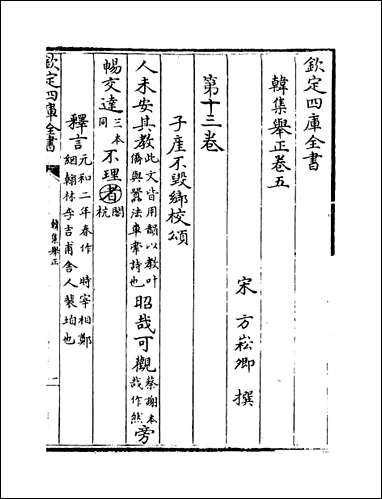 欽定四庫全書
韓集舉正卷五
宋 方崧卿 撰
第十三卷
子產不毀鄉校頌
人未安其教 此文皆用韻以教叶僑與蠶法車舝詩也 昭哉可觀 蔡謝本哉作然 旁
暢交達 三本同 不理者 閣杭
釋言 元和二年春作 時宰相鄭絪翰林李吉甫舍人裴垍也
欽定四庫全書 韓集舉正